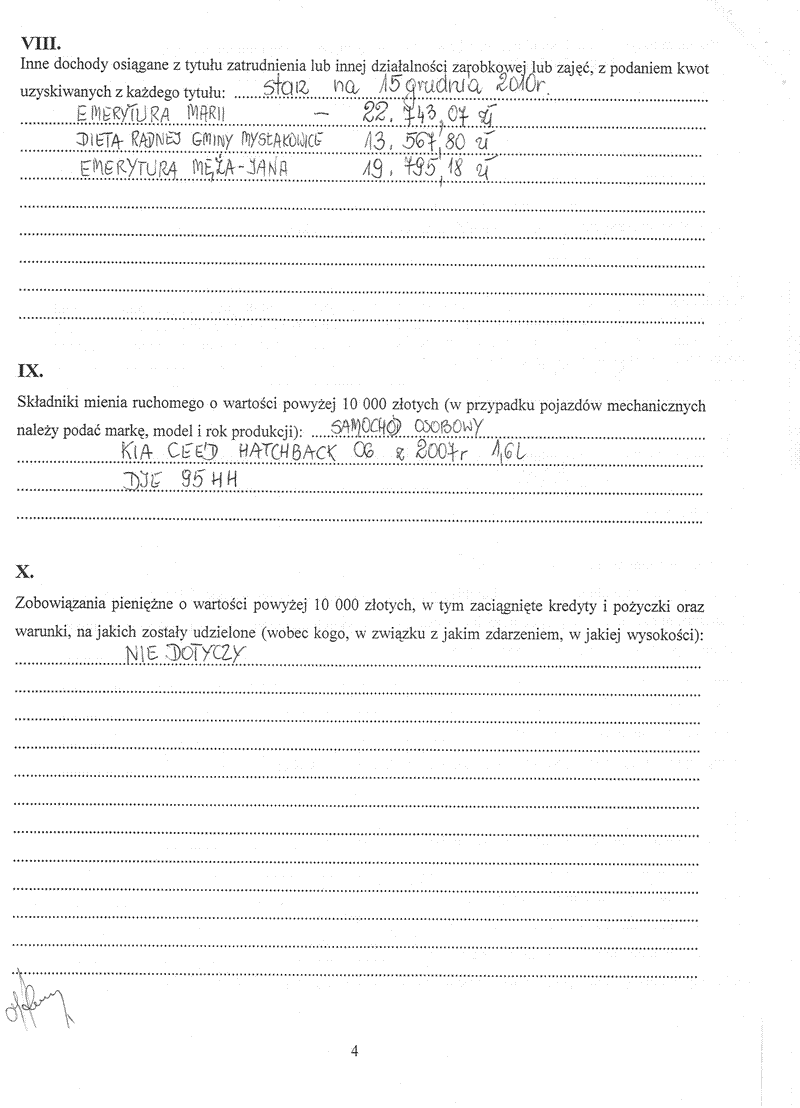 VIII.
Inne dochody osiągane z tytułu zatrudnienia lub innej działalności zarobkowej lub zajęć, z podaniem kwot
uzyskiwanych z każdego tytułu: stan na 15 grudnia 2010r.
EMERYTURA MARII – 22.743,07 zł
DIETA RADNEJ GMINY MYSŁAKOWICE 13.567,80 zł
EMERYTURA MĘŻA-JANA 19.795,18 zł
IX.
Składniki mienia ruchomego o wartości powyżej 10 000 złotych (w przypadku pojazdów mechanicznych
należy podać markę, model i rok produkcji): SAMOCHÓD OSOBOWY
KIA CEE'D HATCHBACK 06 z 2007r 1,6L
DJE 95HH
X.
Zobowiązania pieniężne o wartości powyżej 10 000 złotych, w tym zaciągnięte kredyty i pożyczki oraz
warunki, na jakich zostały udzielone (wobec kogo, w związku z jakim zdarzeniem, w jakiej wysokości):
NIE DOTYCZY
4